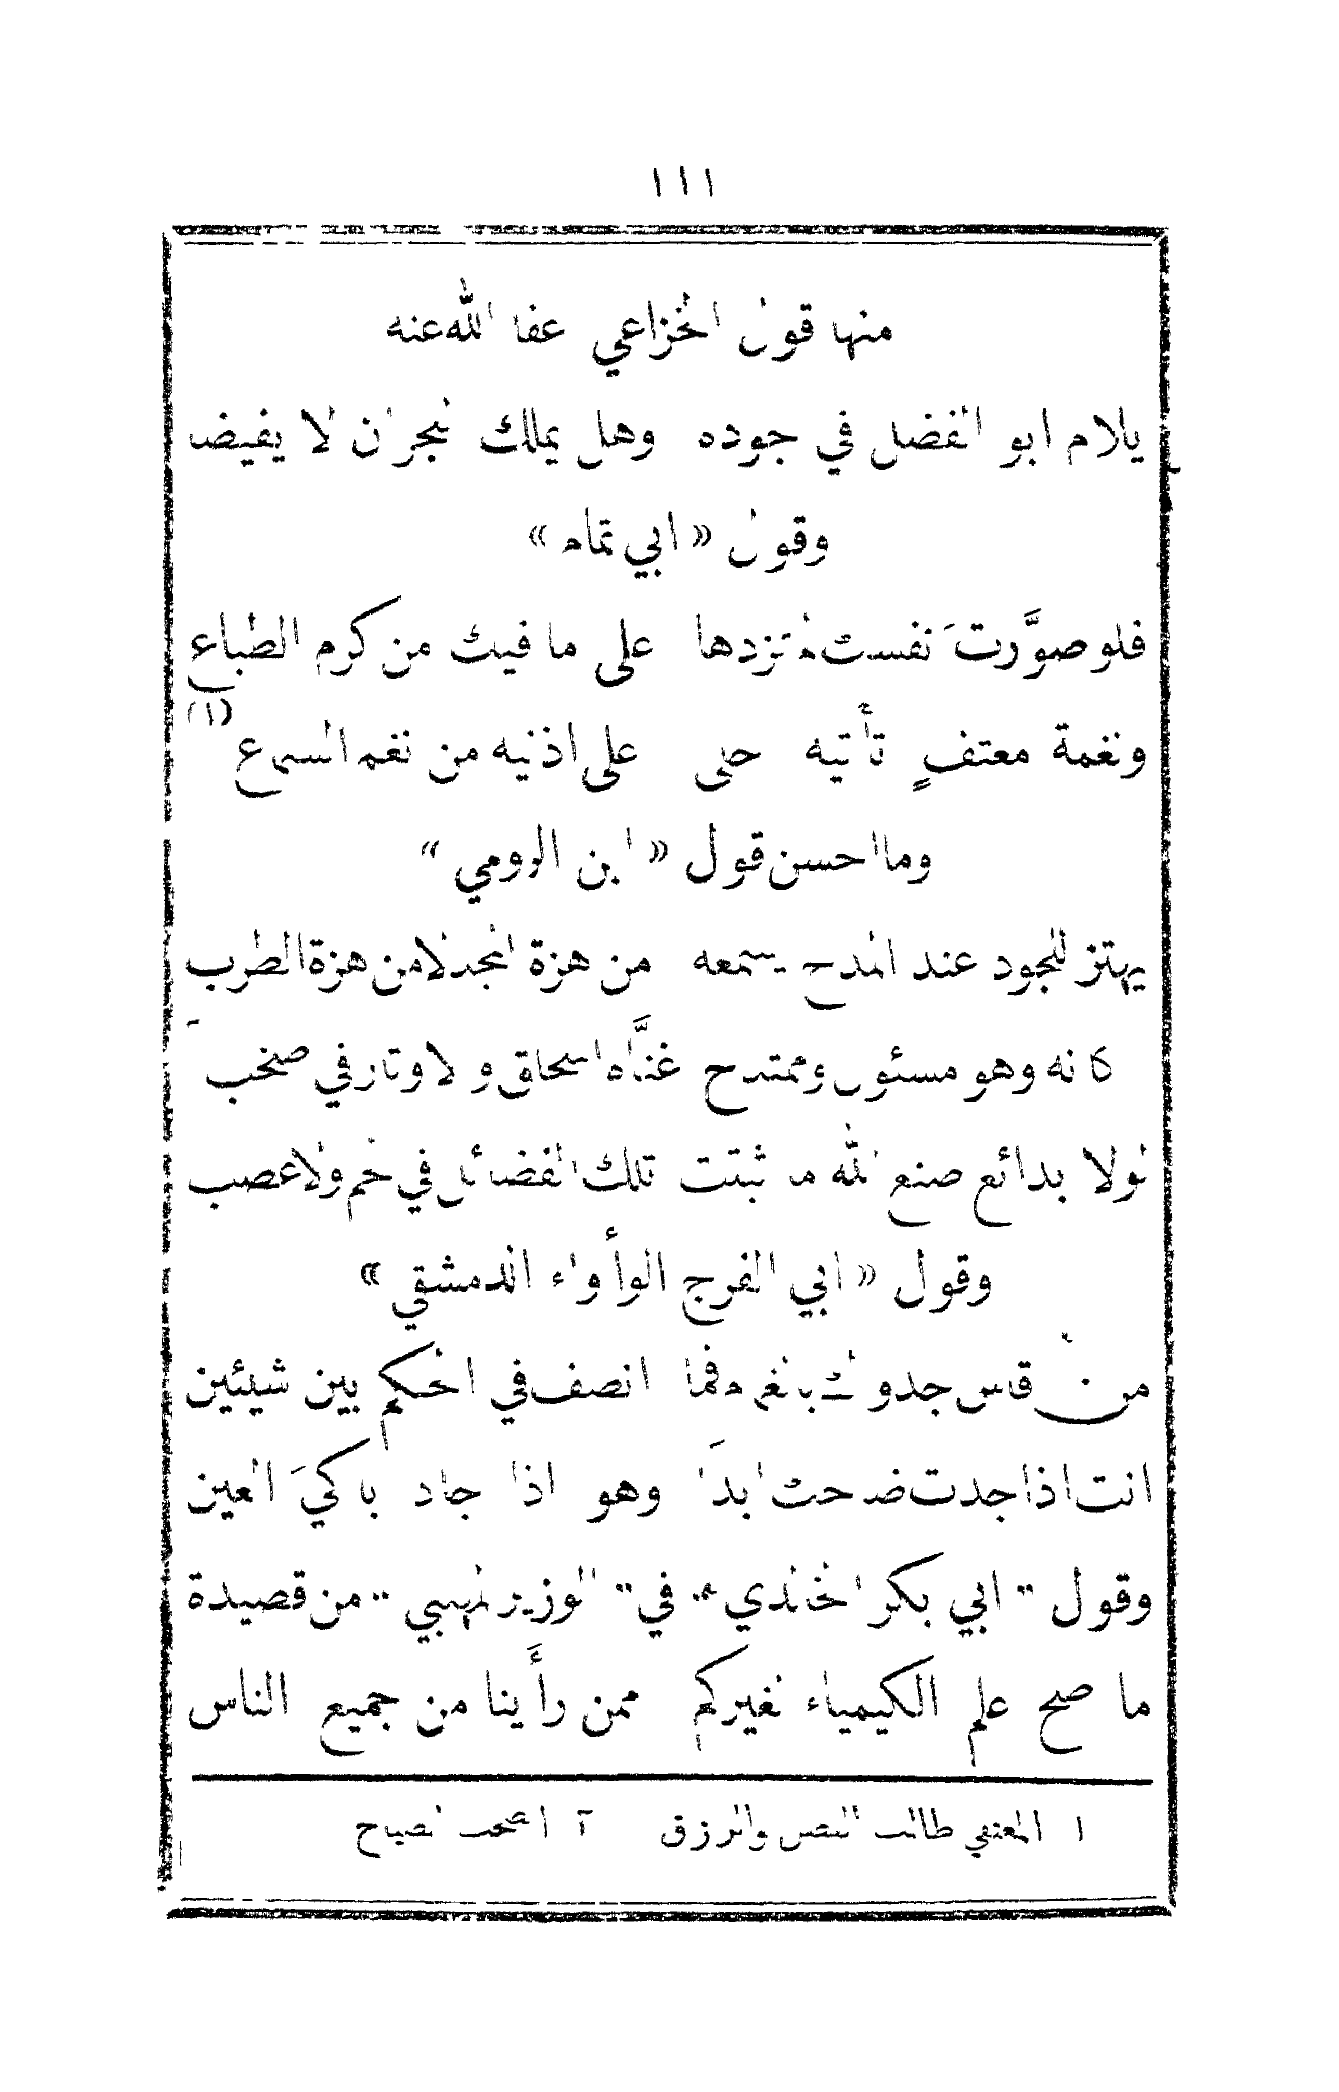 ١١١
منها قول الخزاعي عفا الله عنه
يلام ابو الفضل في جوده وهل يملك البحر ان لا يفيضا
وقول « ابي تمام »
فلو صوَّرتَ نفسك لم تزدها على ما فيك من كرم الطباع
ونغمة معتفٍ تأتيه احلى على اذنيه من نغم السماع (١)
وما احسن قول « ابن الرومي »
يهتز للجود عند المدح يسمعه من هزة المجد لا من هزة الطرب
كانه وهو مسئول وممتدح غنَّاه اسحاق والاوتار في صخب
لولا بدائع صنع الله ما ثبتت تلك الفضائل في لحم ولا عصب
وقول « ابي الفرج الوأواء الدمشقي »
من قاس جدواك بالغمام فما انصف في الحكم بين شيئين
انت اذا جدت ضاحك ابداً وهو اذا جاد باكيَ العين
وقول " ابي بكر الخالدي " في " الوزير المهلبي " من قصيدة
ما صح علم الكيمياء لغيركم ممن رأينا من جميع الناس
١ المعتفي طالب الفضل والرزق ٢ الصخب الصياح